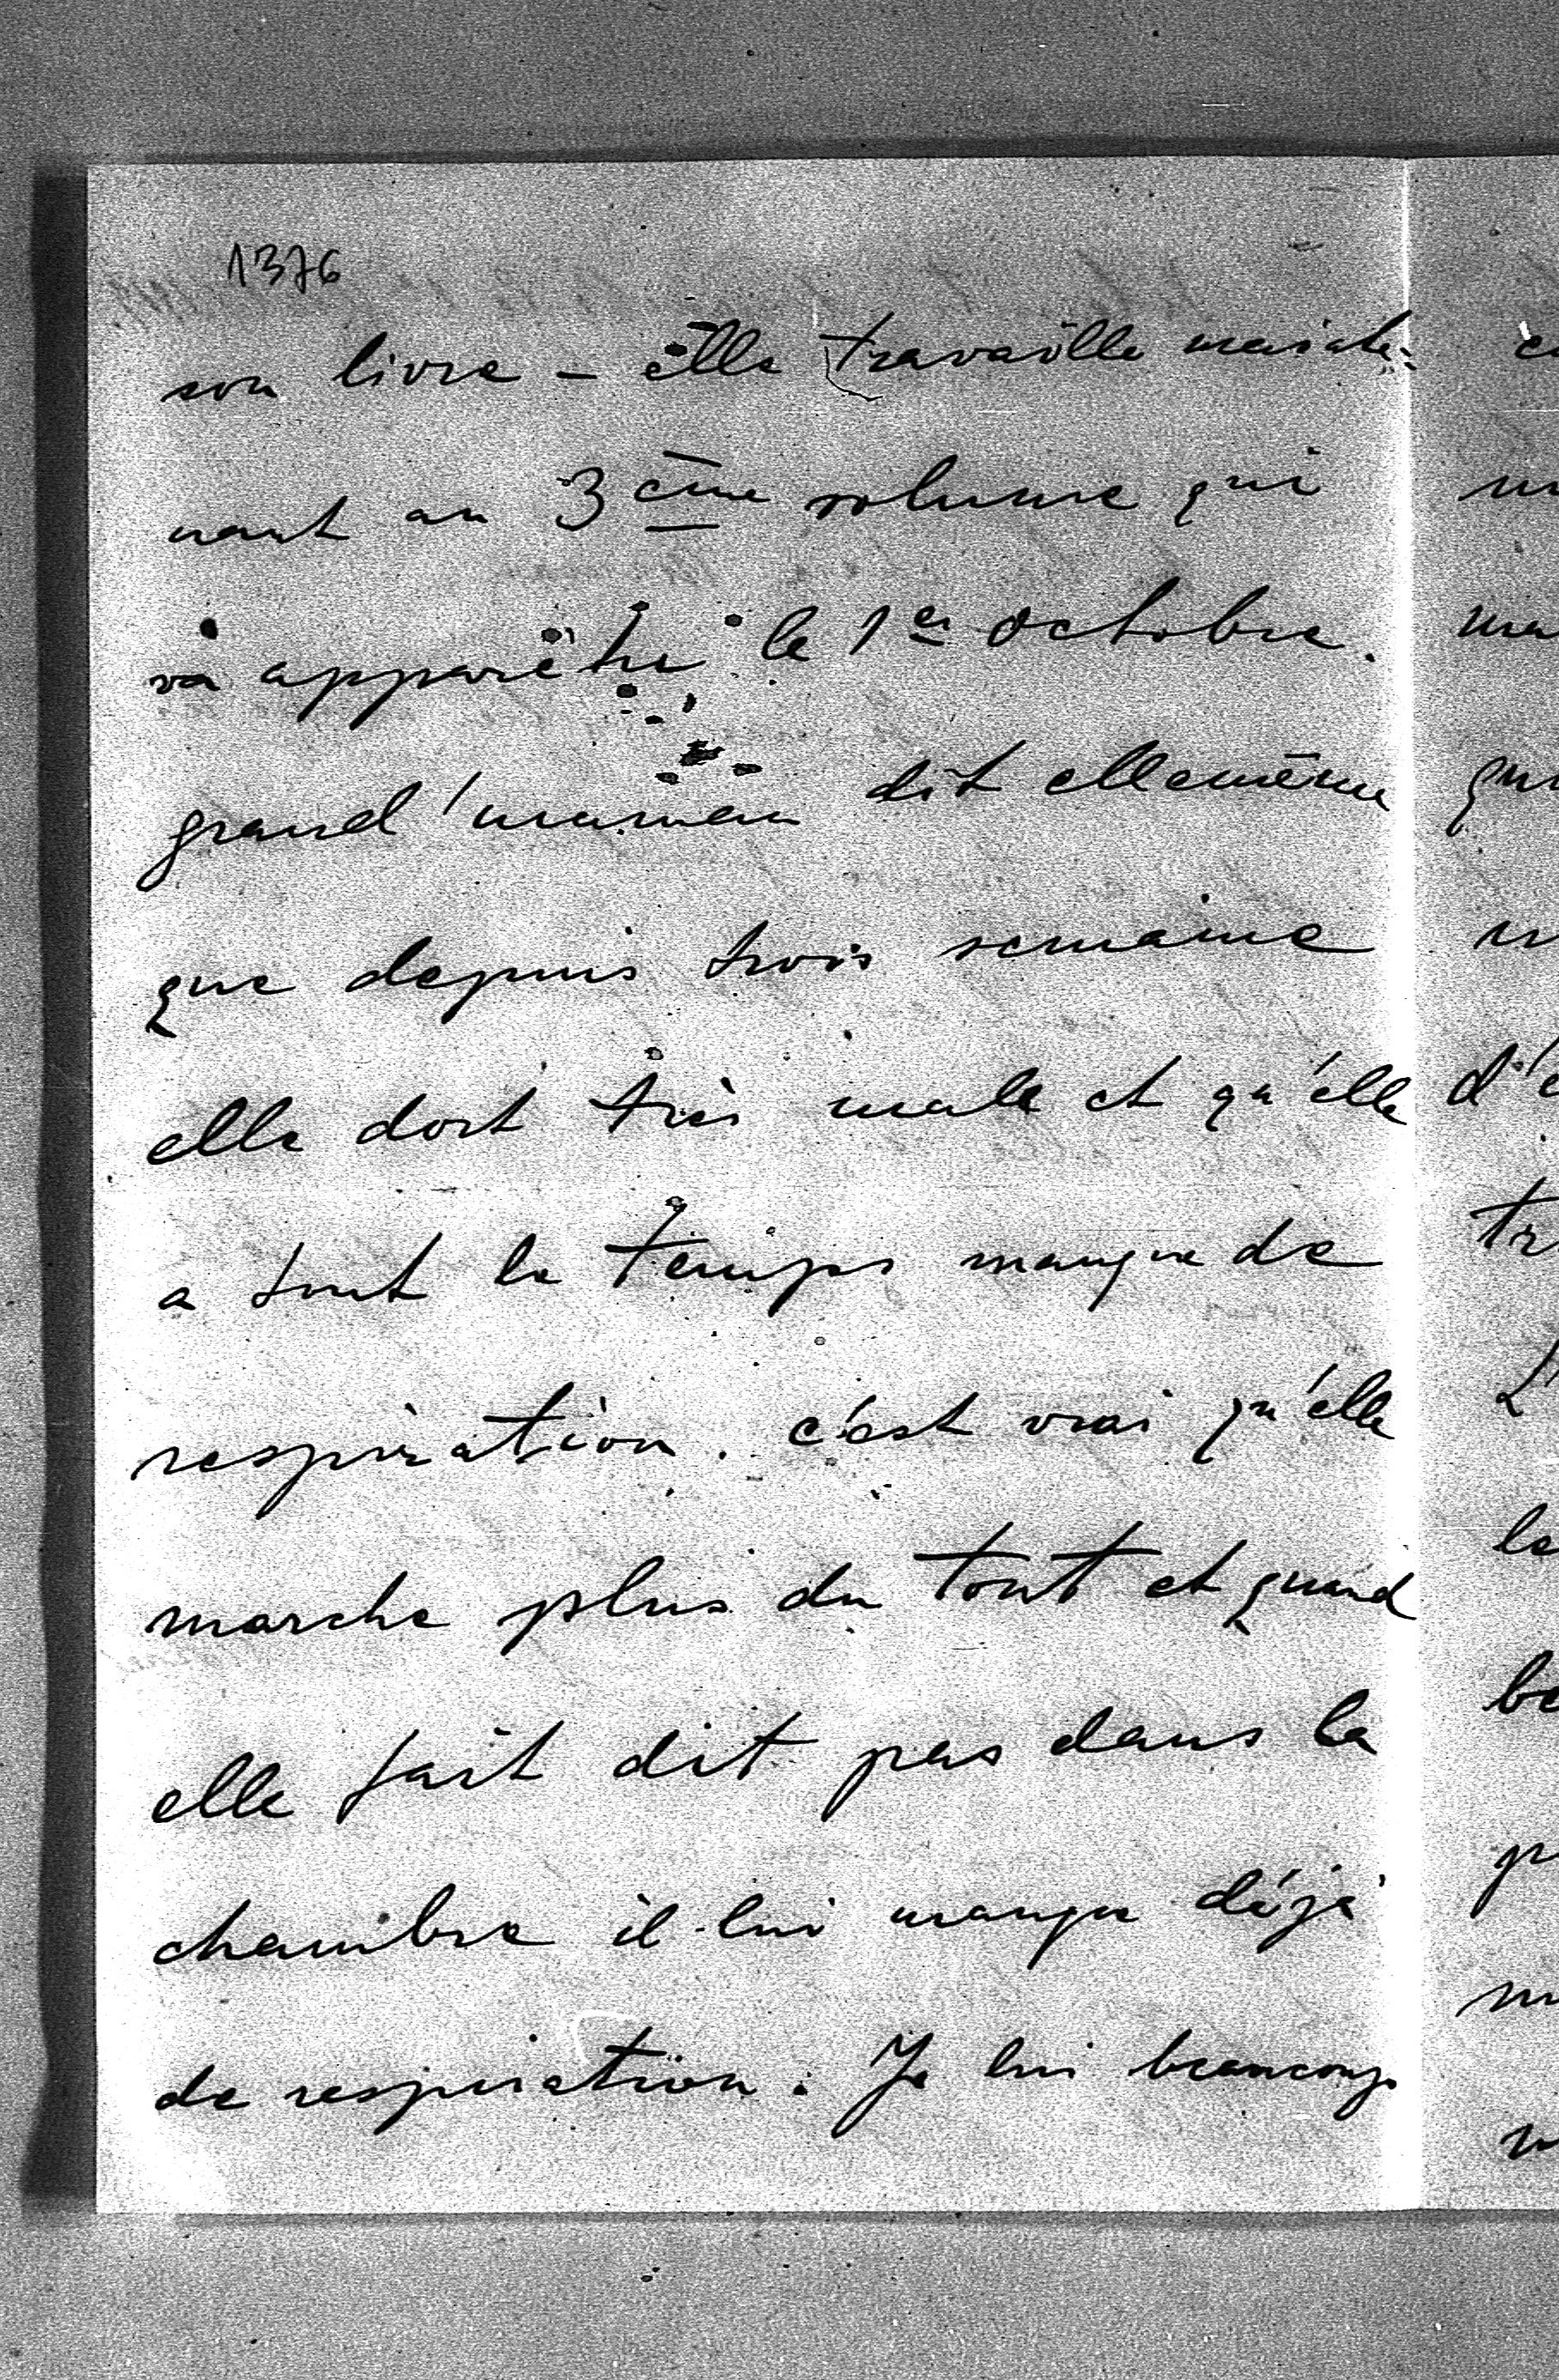 1376
son livre - elle travaille mainte-
nant au 3ème volume qui
va apparêtre le 1er octobre.
grand'maman dit ellemême
que depuis trois semaine
elle dort très male et qu'elle
a tout le temps manque de
respiration. c'est vrai qu'elle
marche plus du tout et quand
elle fait dit pas dans la
chambre il lui manque déjà
de respiration. Je lui beaucoup